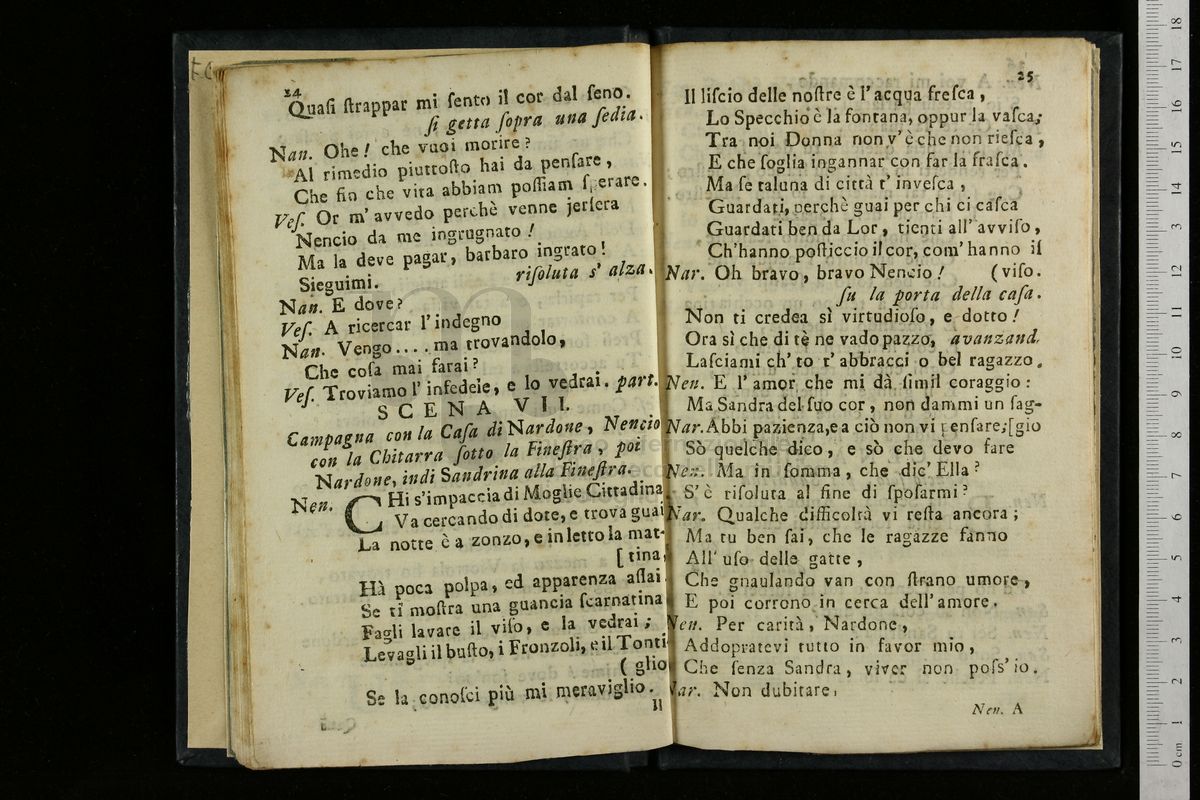 24
Quaſi ſtrappar mi ſento il cor dal ſeno.
ſi getta ſopra una ſedia.
Nan. Ohe! che vuoi morire?
Al rimedio piuttoſto hai da penſare,
Che fin che vita abbiam poſſiam ſperare.
Veſ. Or m'avvedo perchè venne jerſera
Nencio da me ingrugnato!
Ma la deve pagar, barbaro ingrato!
Sieguimi. riſoluta s' alza.
Nan. E dove?
Veſ. A ricercar l'indegno
Nan. Vengo.... ma trovandolo,
Che coſa mai farai?
Veſ. Troviamo l' infedele, e lo vedrai. part.
SCENA VII.
Campagna con la Caſa di Nardone, Nencio
con la Chitarra ſotto la Fineſtra, poi
Nardone, indi Sandrina alla Fineſtra.
Nen. CHi s'impaccia di Moglie Cittadina
Va cercando di dote, e trova guai
La notte è a zonzo, e in letto la mat-
[tina,
Hà poca polpa, ed apparenza aſſai
Se ti moſtra una guancia ſcarnatina
Fagli lavare il viſo, e la vedrai;
Levagli il buſto, i Fronzoli, e il Tonti-
(glio
Se la conoſci più mi meraviglio.
Il
25
Il liſcio delle noſtre è l'acqua freſca,
Lo Specchio è la fontana, oppur la vaſca;
Tra noi Donna non v'è che non rieſca,
E che ſoglia ingannar con far la fraſca.
Ma ſe taluna di città t' inveſca,
Guardati, perchè guai per chi ci caſca
Guardati ben da Lor, tienti all' avviſo,
Ch'hanno poſticcio il cor, com' hanno il
Nar. Oh bravo, bravo Nencio! (viſo.
ſu la porta della caſa.
Non ti credea sì virtudioſo, e dotto!
Ora sì che di tè ne vado pazzo, avanzand.
Laſciami ch' to t' abbracci o bel ragazzo.
Nen. E l' amor che mi dà ſimil coraggio:
Ma Sandra del ſuo cor, non dammi un ſag-
Nar. Abbi pazienza, e a ciò non vi penſare; [gio
Sò quelche dico, e sò che devo fare
Nen. Ma in ſomma, che dic' Ella?
S' è riſoluta al fine di ſpoſarmi?
Nar. Qualche difficoltà vi reſta ancora;
Ma tu ben ſai, che le ragazze fanno
All' uſo delle gatte,
Che gnaulando van con ſtrano umore,
E poi corrono in cerca dell' amore.
Nen. Per carità, Nardone,
Addopratevi tutto in favor mio,
Che ſenza Sandra, viver non poſs' io.
Nar. Non dubitare,
Nen. A